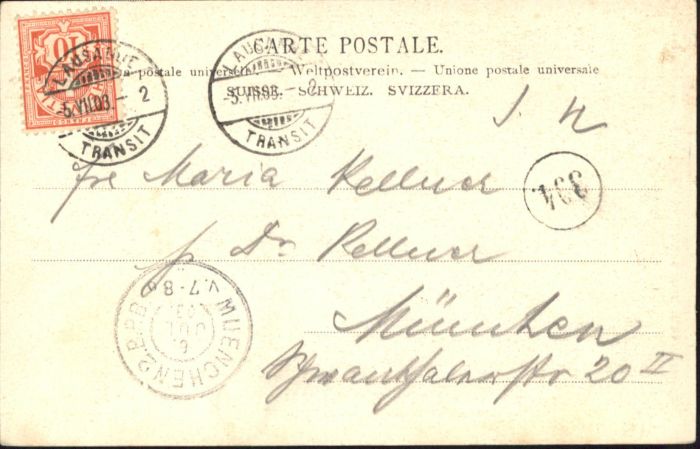 CARTE POSTALE.
postale universelle. — Weltpostverein. — Unione postale universale
SUISSE. SCHWEIZ. SVIZZERA.
10
LAUSANNE
-5.VII.03.- 2
TRANSIT
LAUSANNE
-5.VII.03.- 2
TRANSIT
S. H
Maria Kellner
334
p. Dr. Kellner
München
20 II
MUENCHEN 2 B.P.
6. JUL 03.
V. 7-8